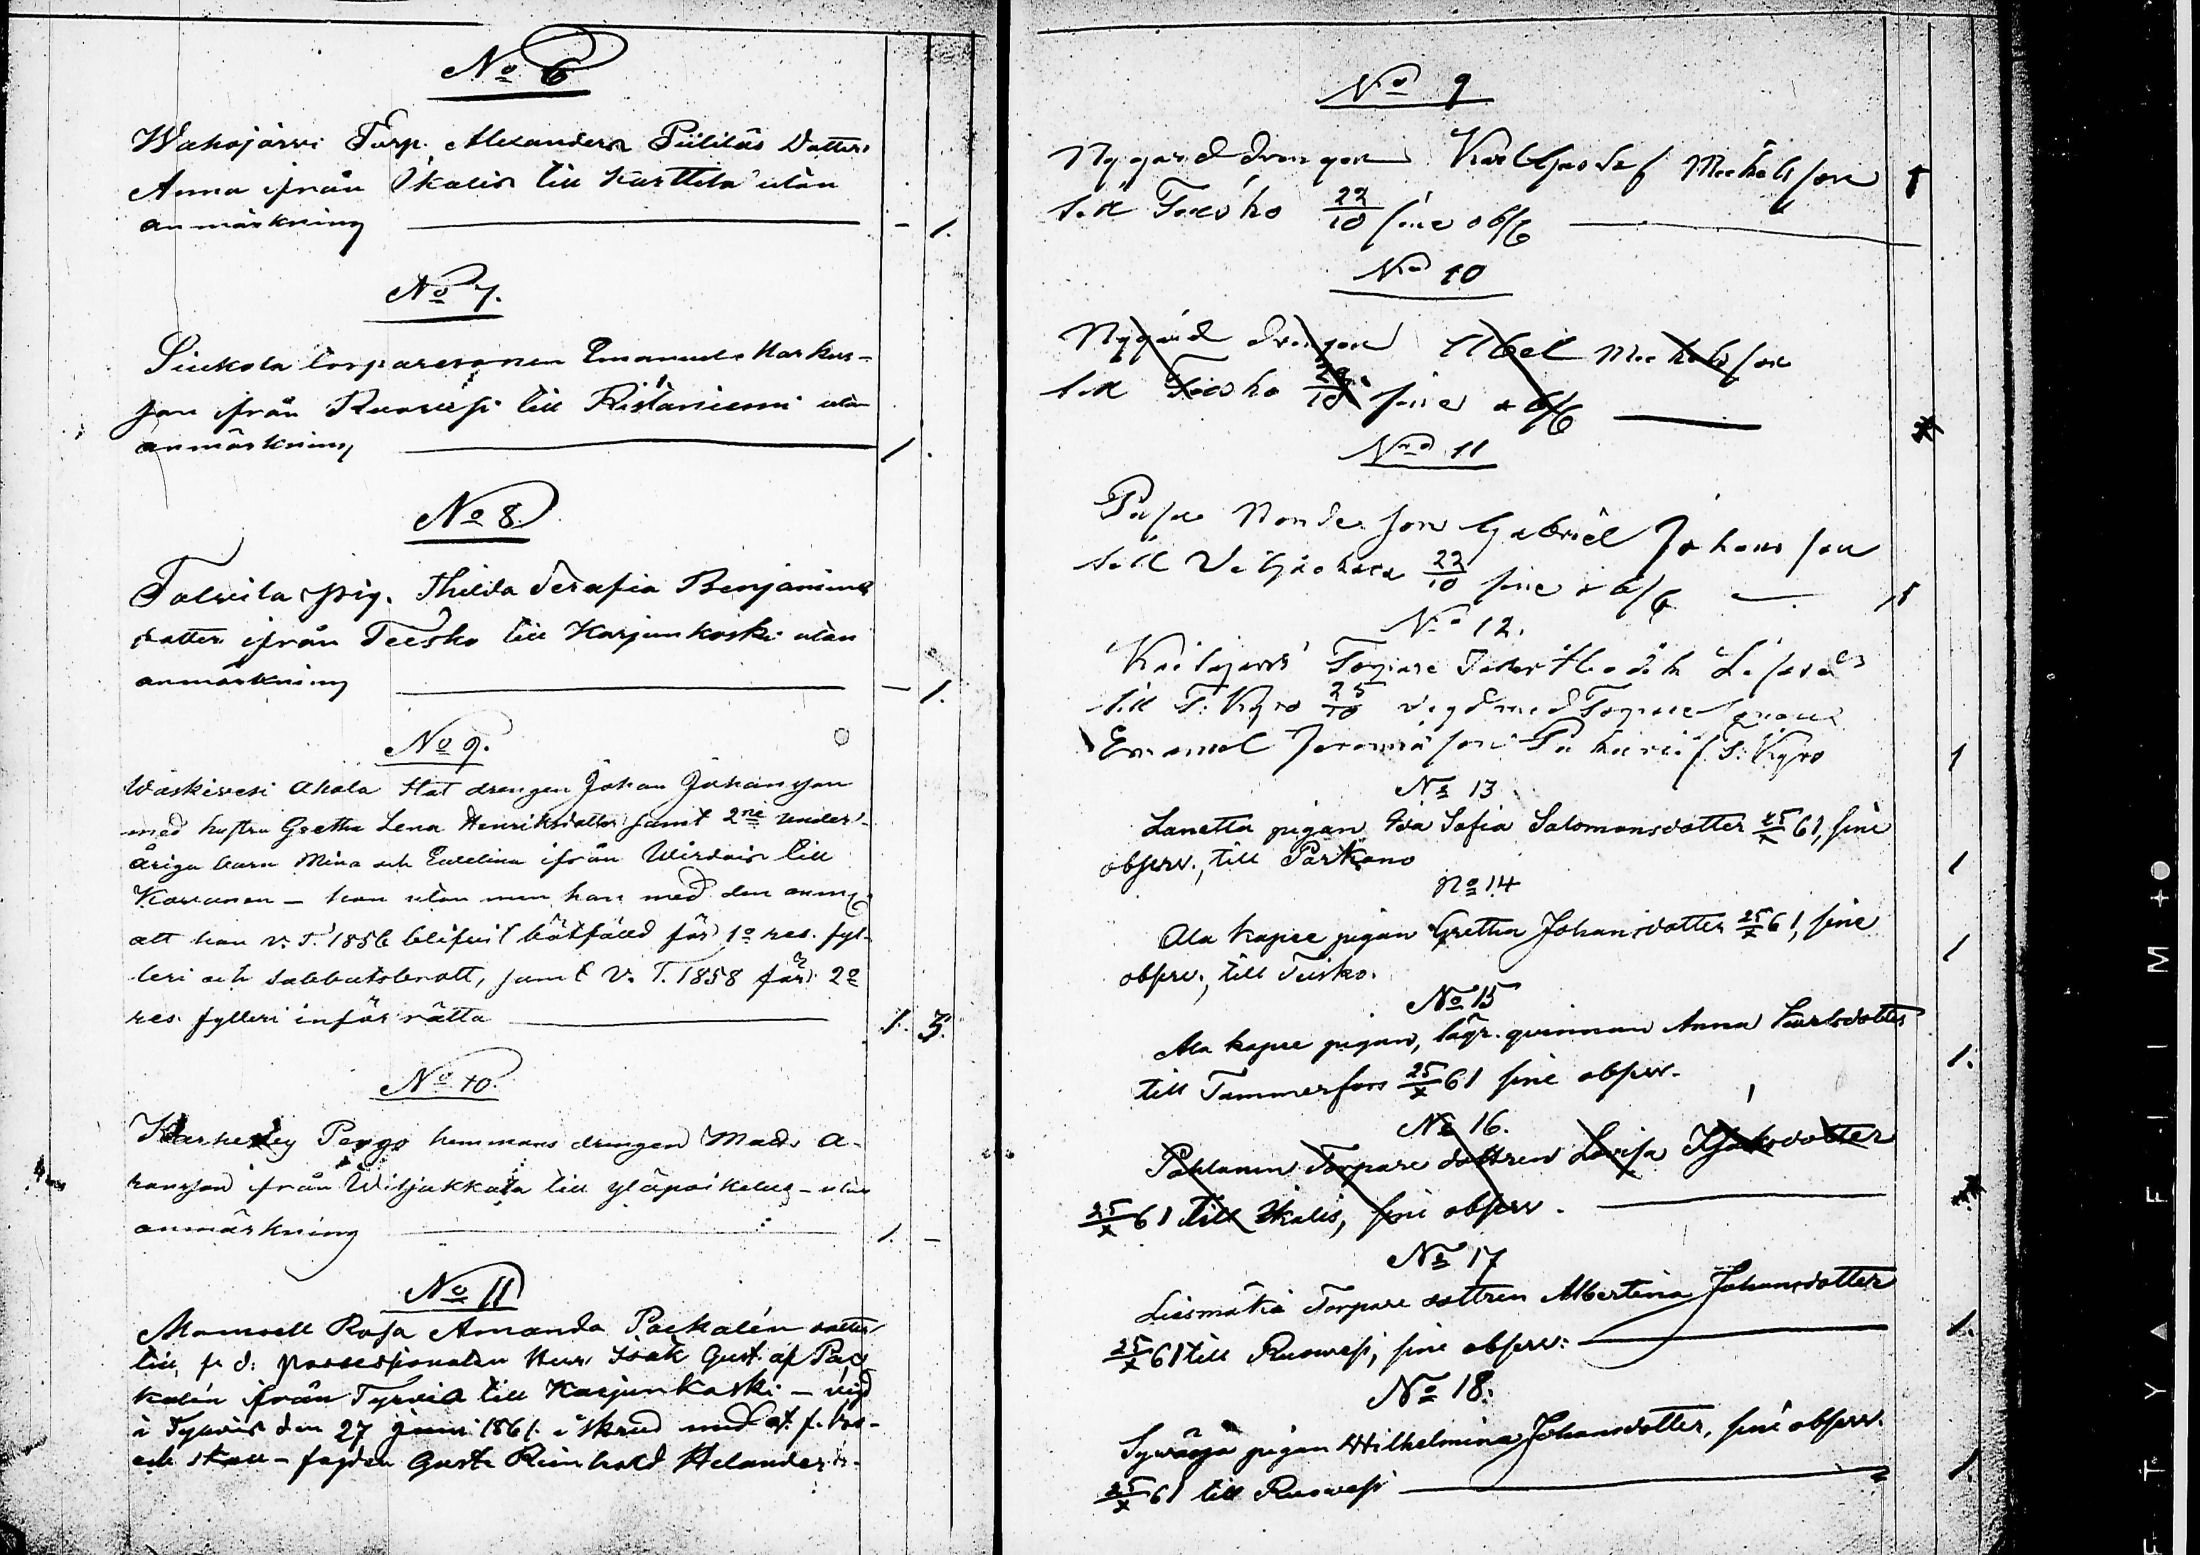 No 6
Wahojärvi Torp. Alexanders Piililäs Dotter
Anna ifrån Ikalis till Kurttila utan
anmärkning - 1.
No 7.
Siukola torparesonen Emanuel Markus-
son ifrån Ruovesi till Ristaniemi utan
anmärkning 1 .
No 8.
Talvila pig. Thilda Serafia Benjamins
dotter ifrån Teesko till Karjunkoski utan
anmärkning - 1.
No 9.
Waskivesi Ahola Stat drengen Johan Johansson
med hustru Gretha Lena Henriksdotter samt 2ne under-
åriga barn Mina och Evelina ifrån Wirdois till
Kovanen - hon utan men han med den anm.
att han v. T. 1856 blifvit bötfäld för 1o res. fyl-
leri och sabbatsbrott, samt V. T. 1858 för 2o
res. fylleri inför rätta 1. 3.
No 10.
Pergo hemmans drengen Mats A-
ransson ifrån Wiljakkala till yläpoikelus - utan
anmärkning 1. -
No 11
Mamsell Rosa Amanda Packalén dotter
till f. d. possessionaten Herr Isak Gust. af Pac
kalén ifrån Tyrvis till Karjunkoski - vigd
i Tyrvis den 27 juni 1861. i Skrud med
och skall - fogden Gusta Reinhold Helander
No 9
Nygård drengen Karl Gustaf Mickelsson 1
till Teisko 22/10 sine obs
No 10
Nygård drengen Abel Mickelsson
till Teisko 22/10 sine obs
No 11
Bonde son Gabriel Johansson
till Viljackala 22/10 sine obs 1
No 12.
Torpare Dotter Hedvik
till T: Kyro 25/10 vigd med Torpare
Emanuel T: Kyro 1
No 13
Lanetta pigan Ida Sofia Salomonsdotter 25/X 61, sine
observ., till Parkano 1
No 14
Ala Kapee pigan Gretha Johansdotter 25/X 61, sine
observ., till Teisko. 1
No 15
Ala Kapee pigan, lägr. quinnan Anna Karlsdotter
till Tammerfors 25/X 61 sine observ. 1.
No 16.
Pohlanen Torpare dottren Lovisa
25/X 61 till Ikalis, sine observ.
No 17
Liesmäkiä Torpare dottren Albertina Johansdotter
25/X 61 till Ruovesi, sine observ: 1.
No 18.
Sywänja pigan Wilhelmina Johansdotter, sine observ.
25/X 61 till Ruovesi 1.
FTYAFILM